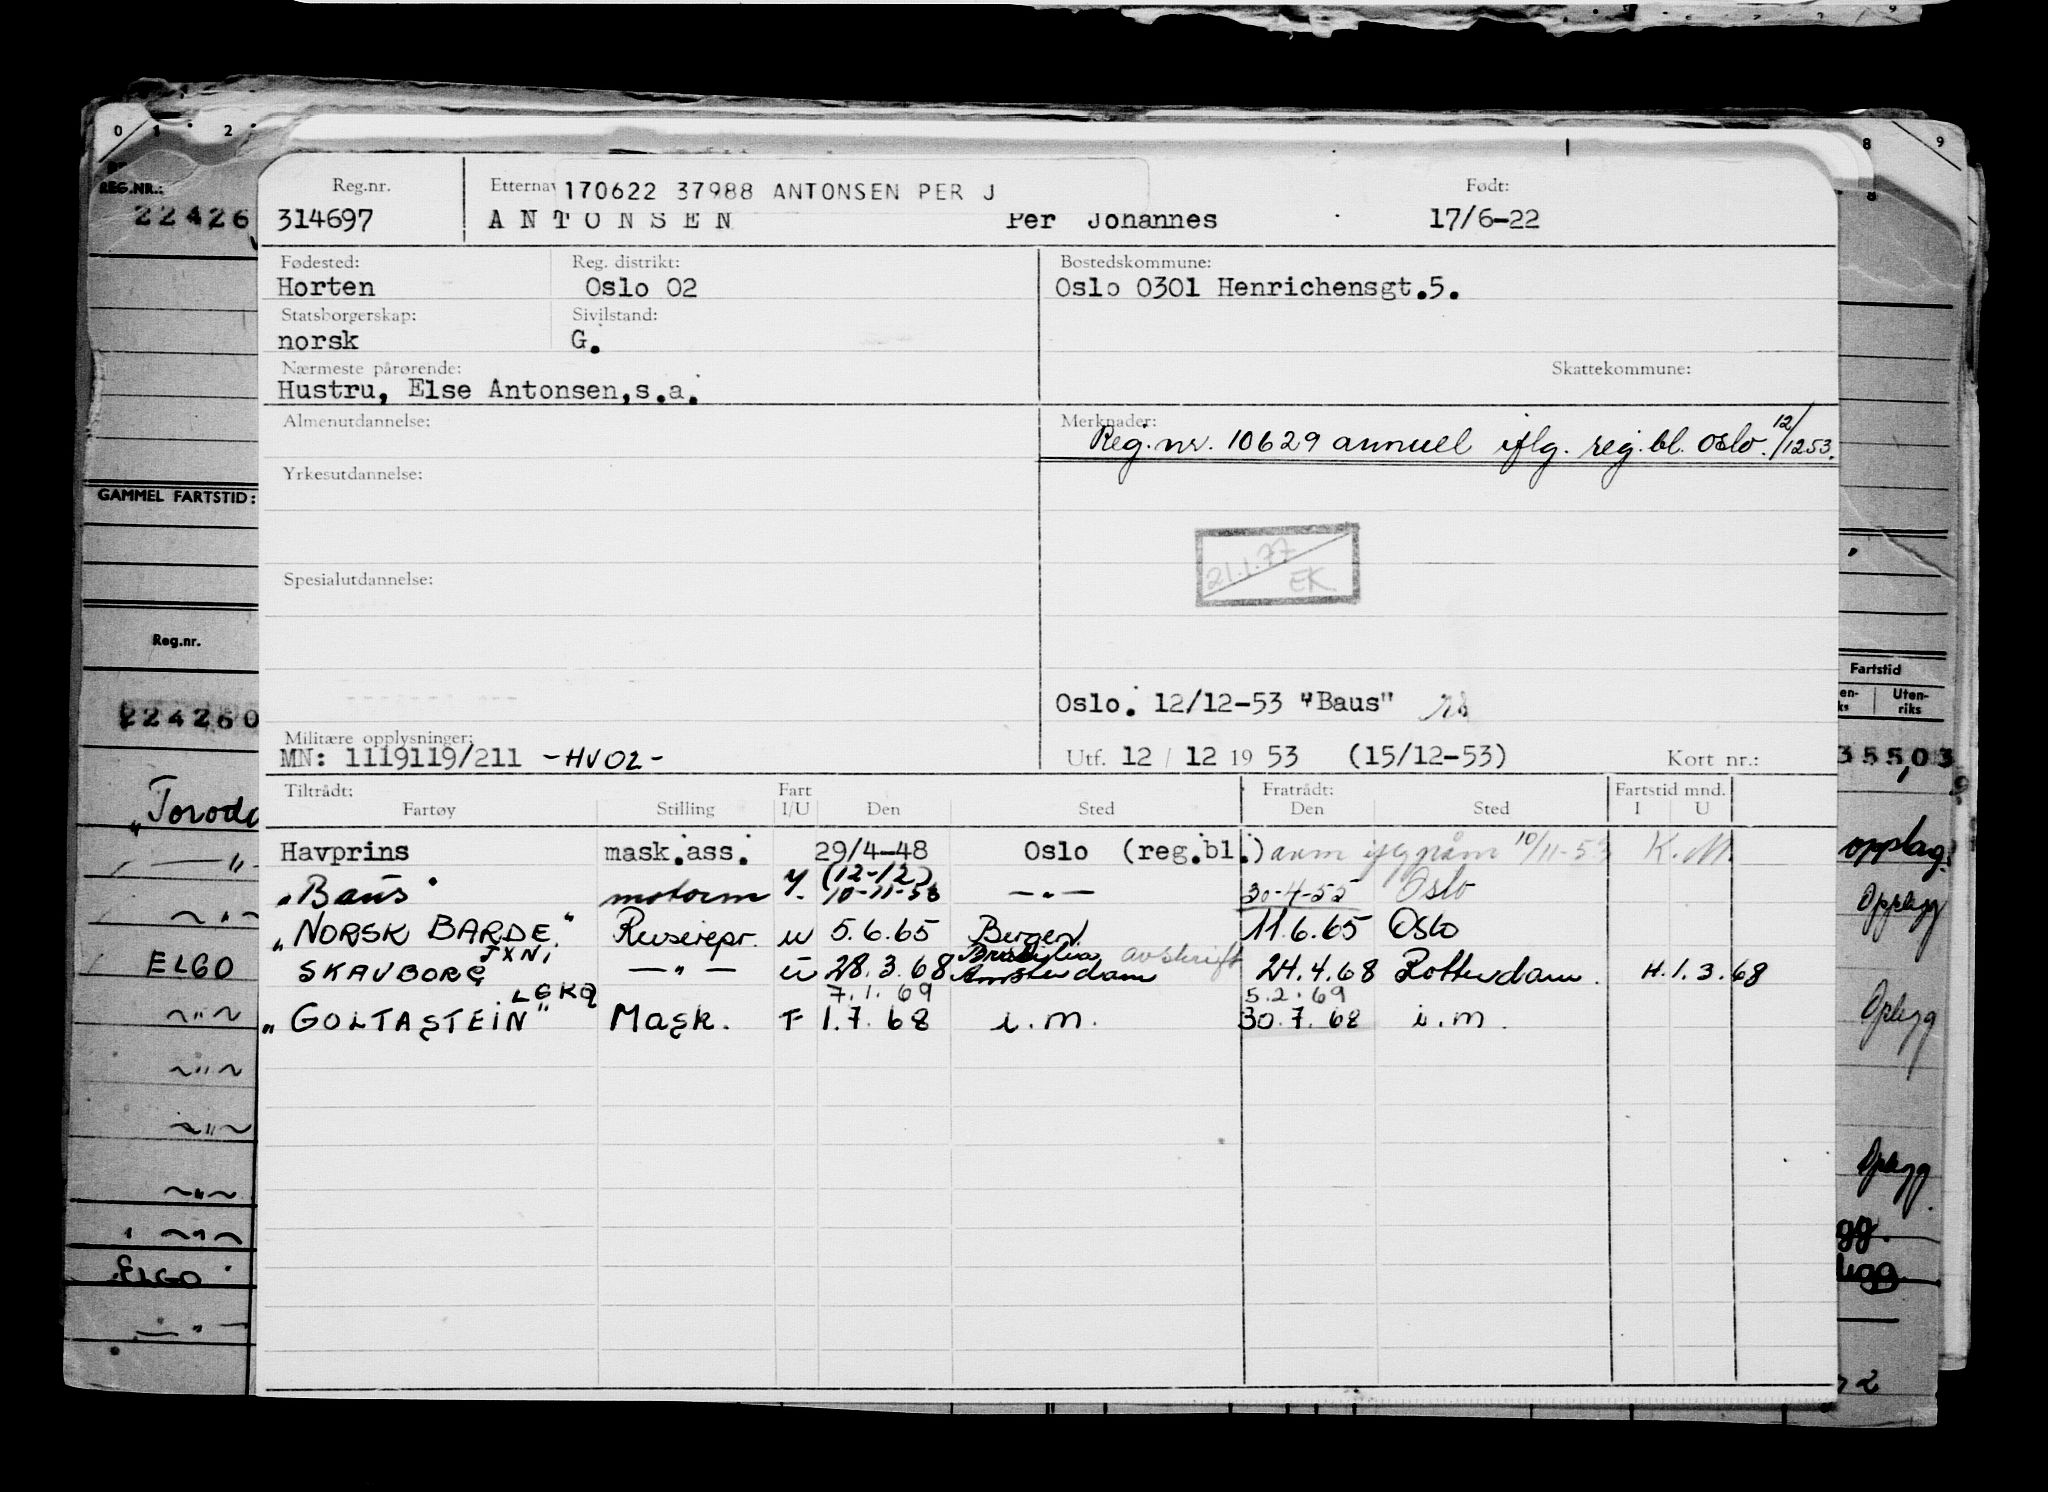 0 1 2 8 9
REG.NR.:
22426
8
Reg.nr. Etternav 170622 37988 ANTONSEN PER J Født:
314697 ANTONSEN Per Johannes 17/6-22
Fødested: Reg. distrikt: Bostedskommune:
Horten Oslo 02 Oslo 0301 Henrichensgt.5.
Statsborgerskap: Sivilstand:
norsk G.
Nærmeste pårørende: Skattekommune:
Hustru, Else Antonsen,s.a.
Almenutdannelse: Merknader:
Reg.nr. 10629 annuel iflg. reg.bl. Oslo. 12/1253.
Yrkesutdannelse:
GAMMEL FARTSTID:
21.1.77
EK
Spesialutdannelse:
Reg.nr.
Fartstid
en-ks Uten-riks
224260
Oslo. 12/12-53 "Baus"
Militære opplysninger:
MN: 1119119/211 -HV02- Utf. 12 / 12 19 53 (15/12-53) Kort nr.:
35503
Tiltrådt: Fart Fratrådt: Fartstid mnd.
Fartøy Stilling I/U Den Sted Den Sted I U
Havprins mask.ass. 29/4-48 Oslo (reg.bl.) 10/11-53 K.M.
opplag.
(12-12)
"Baus" motorm 10-11-53 -"- 30-4-55 Oslo
"NORSK BARDE" Reiserepr. u 5.6.65 Bergen 11.6.65 Oslo
JXNI
ELGO
SKAVBORG -"- u 28.3.68 Amsterdam avskrift 24.4.68 Rotterdam. H.1.3.68
LGKQ 7.1.69 5.2.69
"GOLTASTEIN" Mask. F 1.7.68 i.m. 30.7.68 i.m.
Oplegg
Oplegg
gg.
ELGO
2